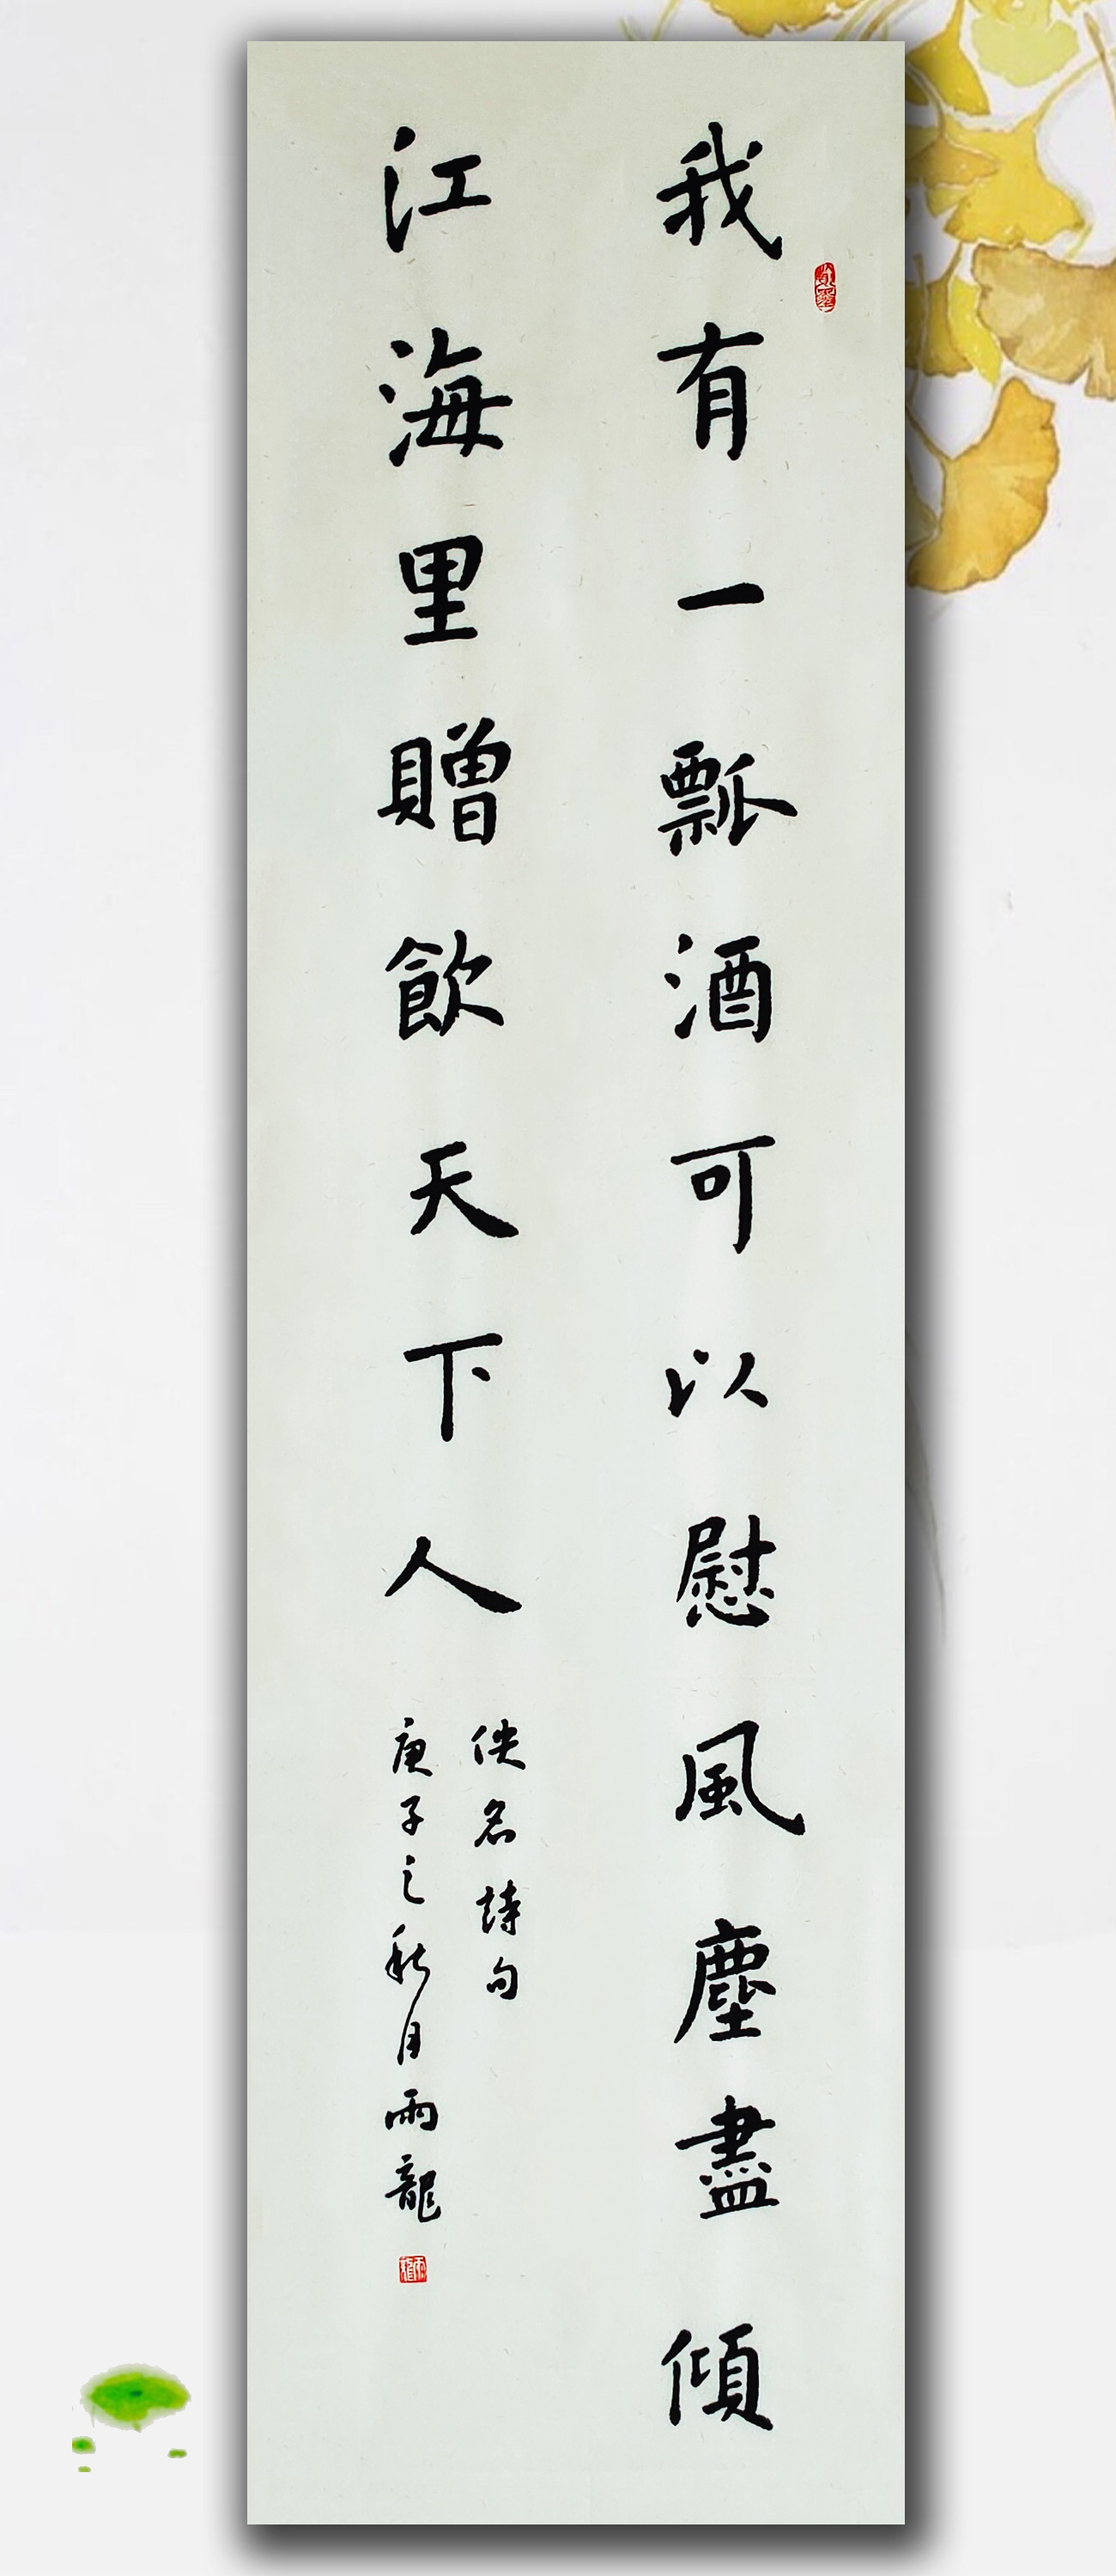 我有一瓢酒可以慰風塵盡傾
江海里贈飲天下人
佚名詩句
庚子之秋月雨龍
雨龍